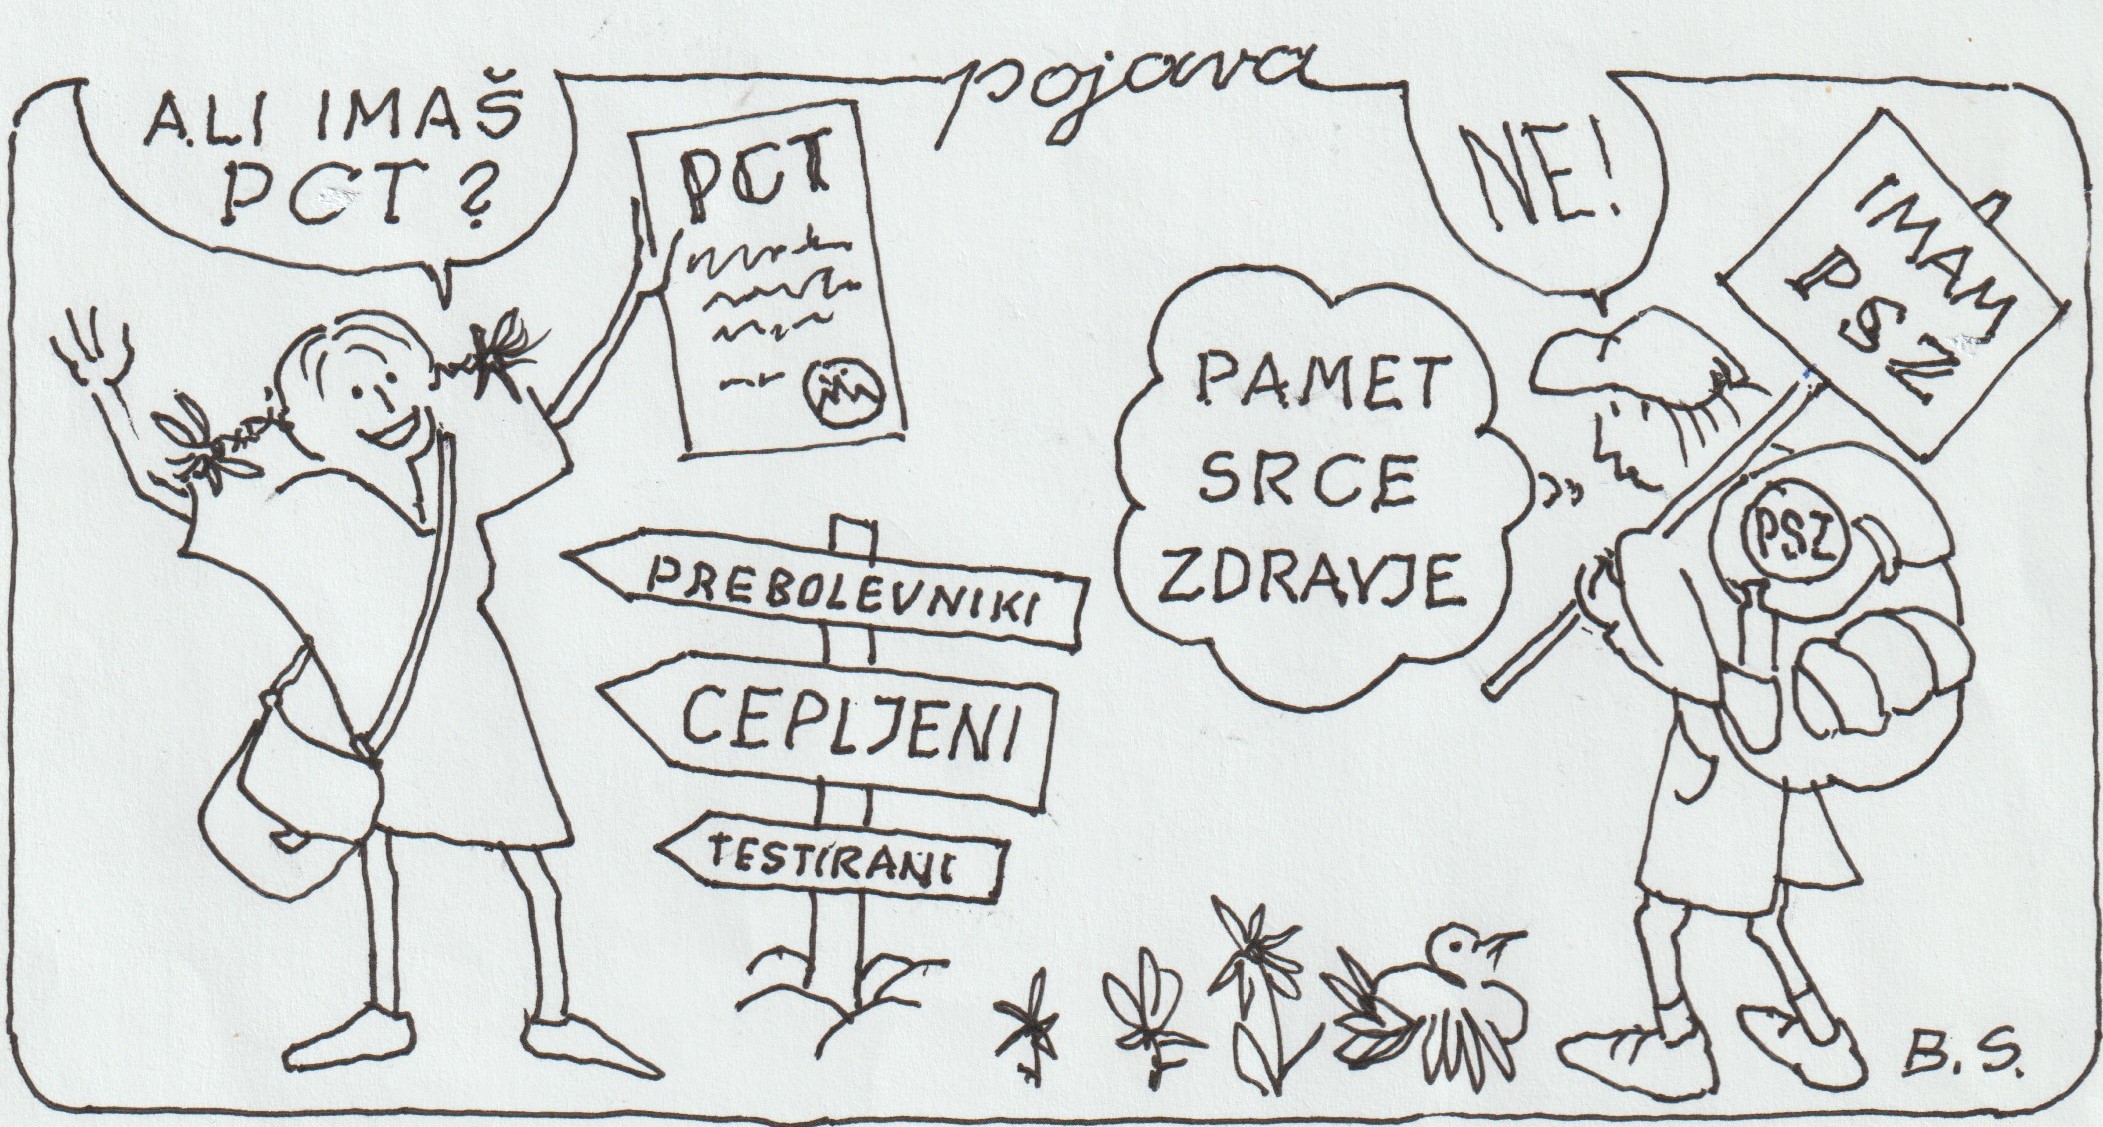 pojava
ALI IMAŠ
PCT?
PCT
NE!
IMAM
PSZ
PAMET
SRCE
ZDRAVJE
PSZ
PREBOLEVNIKI
CEPLJENI
TESTIRANI
B.S.